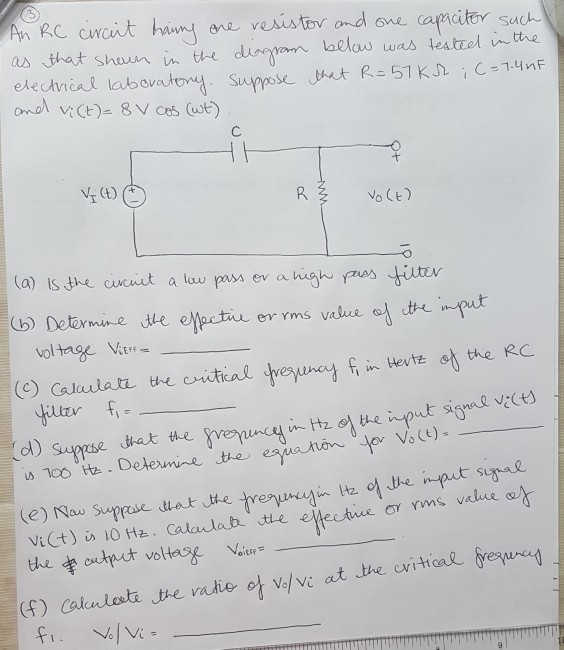 ③
An RC circuit having one resistor and one capacitor such
as that shown in the diagram below was tested in the
electrical laboratory. Suppose that R = 57 KΩ ; C = 7.4 nF
and Vi(t) = 8 V cos (ωt)
C
+
VI(t) + − R Vo(t)
−
(a) Is the circuit a low pass or a high pass filter
(b) Determine the effective or rms value of the input
voltage ViEFF = ________
(c) Calculate the critical frequency f1 in Hertz of the RC
filter f1 = ________
(d) Suppose that the frequency in Hz of the input signal Vi(t)
is 700 Hz. Determine the equation for Vo(t) = ________
(e) Now suppose that the frequency in Hz of the input signal
Vi(t) is 10 Hz. Calculate the effective or rms value of
the output voltage VoEFF = ________
(f) Calculate the ratio of Vo/Vi at the critical frequency
f1. Vo/Vi = ________
9